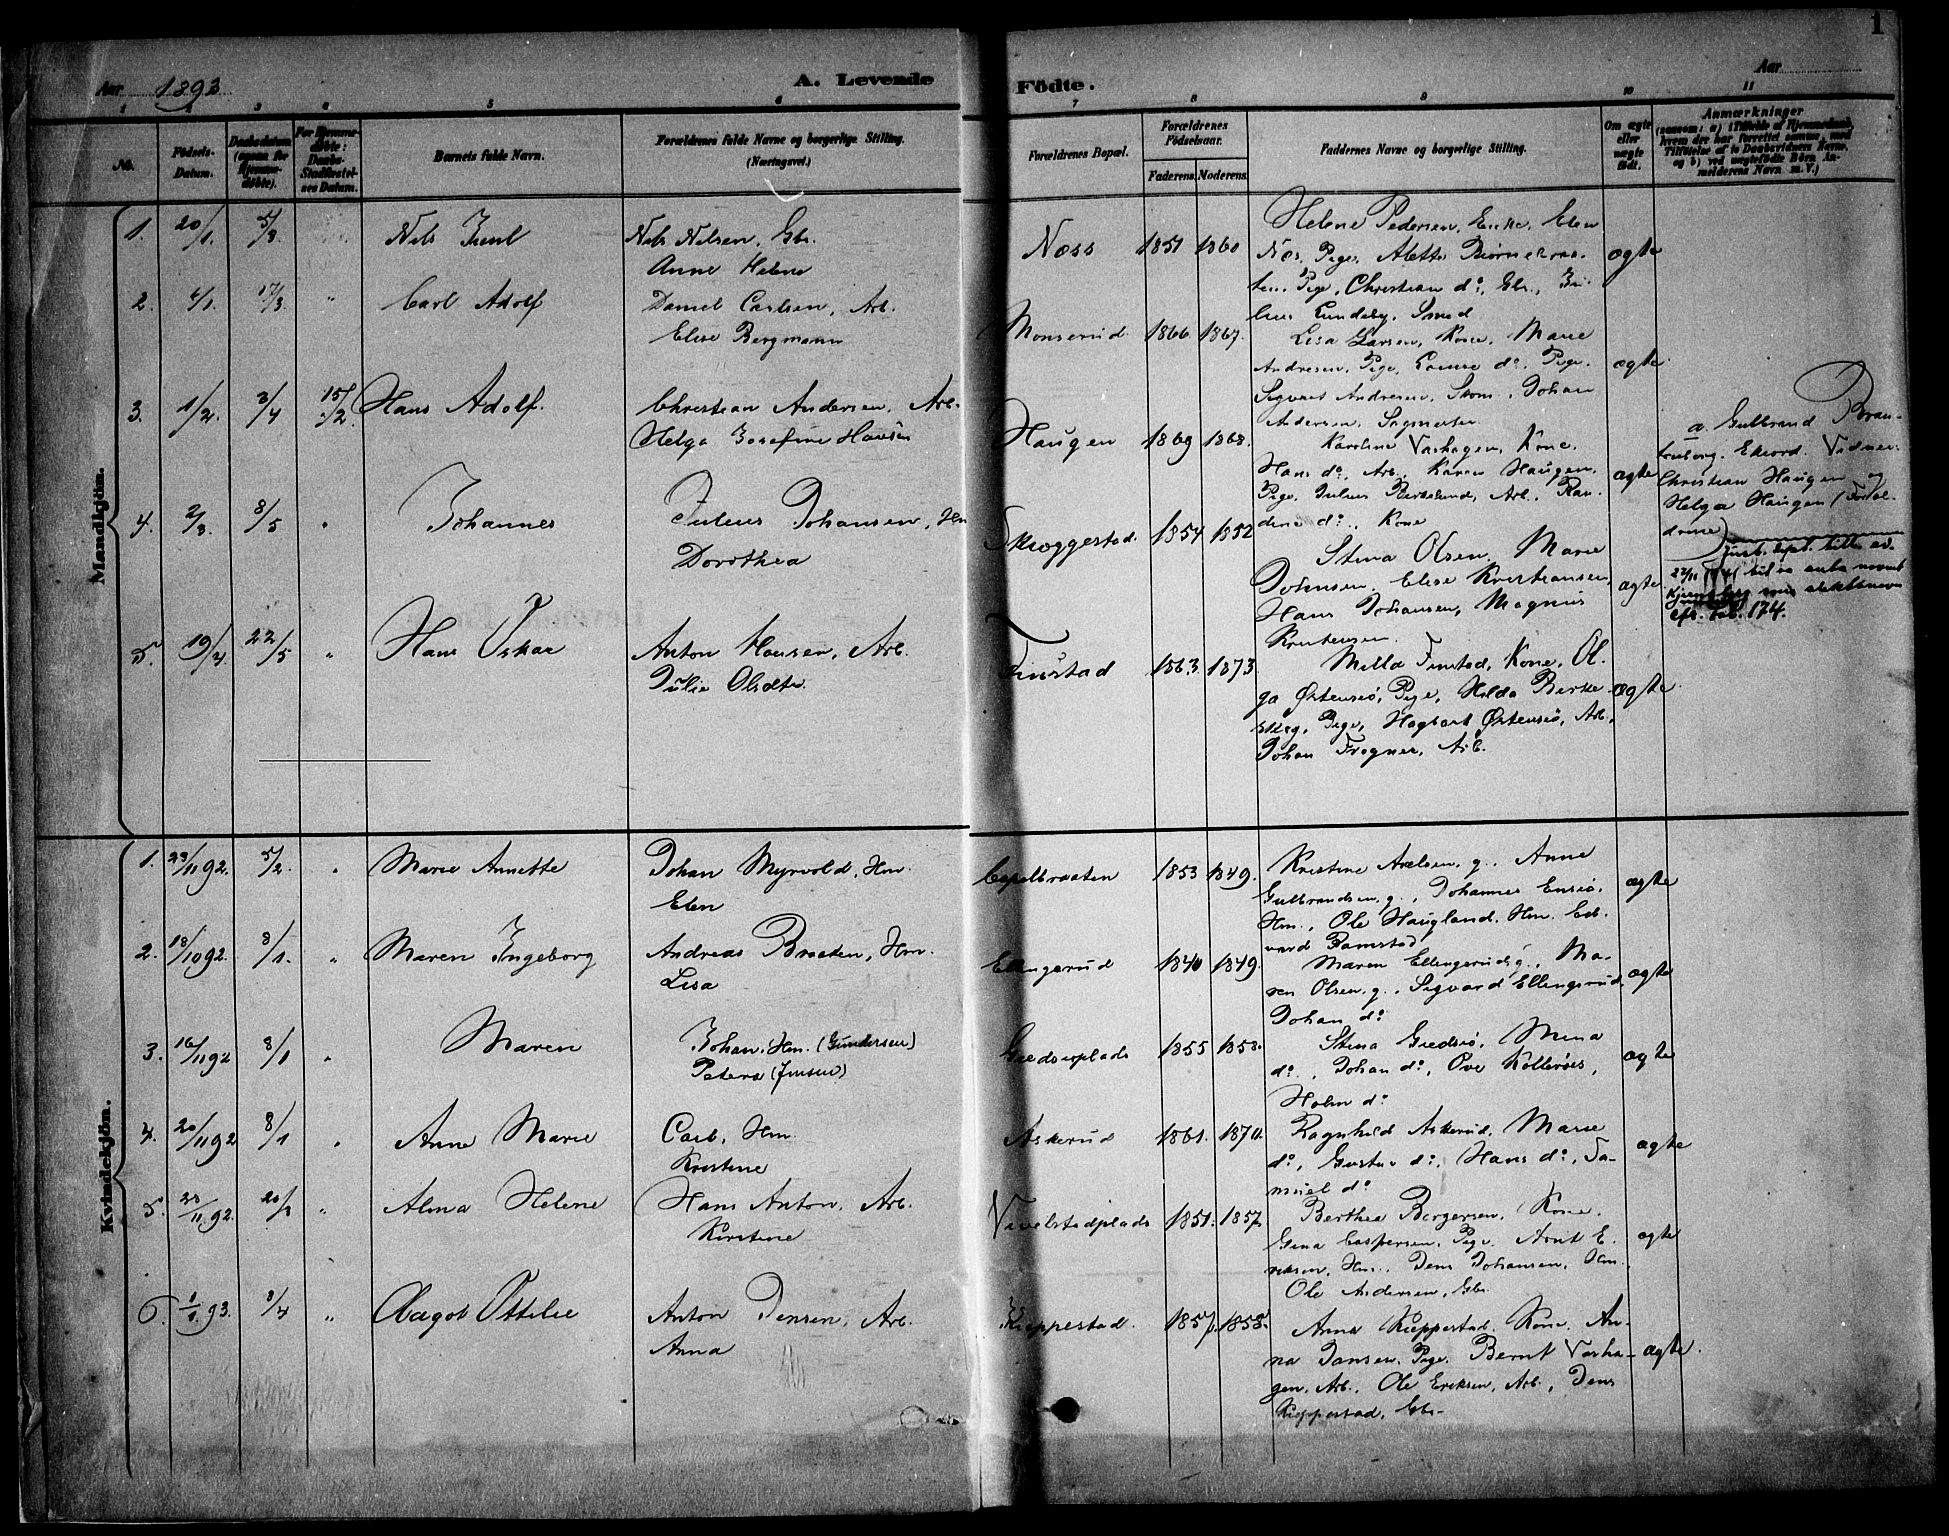 1
Aar 1893.
A. Levende
Födte.
Aar
1 2 3 4 5 6 7 8 9 10 11
No.
Födsels-
Datum.
Daabsdatum
(ogsaa for
Hjemme-
döbte).
For Hjemme-
döbte:
Daabs-
Stadfæstel-
ses Datum.
Barnets fulde Navn.
Forældrenes fulde Navne og borgerlige Stilling.
(Næringsvei.)
Forældrenes Bopæl.
Forældrenes
Födselsaar.
Faderens. Moderens.
Faddernes Navne og borgerlige Stilling.
Om ægte
eller
uægte
födt.
Anmærkninger
(saasom: a) i Tilfælde af Hjemmedaab,
hvem der har forrettet samme, med
Tilföielse af to Daabsvidners Navne,
og b) ved uægtefödte Börn An-
melderens Navn m. V.)
Mandkjön.
1. 20/1. 5/3. Nils Emil
Nils Nilsen, Gbr.
Anne Helene
Næss 1851 1860
Helene Pedersen, Enke, Elen
Næs, Pige, Alette
Pige, Christian do, Gbr.,
Lundeby, Smed
ægte
2. 4/1. 17/3. " Carl Adolf
Daniel Carlsen, Arb.
Elise Bergmann
Monserud 1866 1867.
Lisa Larsen, Kone, Marie
Andresen, Pige, Lovise do, Pige.
Sigvart Andresen, Skom., Johan
Andersen, Sagmester
ægte
3. 1/2. 3/4 15/2. Hans Adolf.
Christian Andersen, Arb.
Helga Josefine Hansen
Haugen 1869 1868.
Karoline Varhagen, Kone.
Hans do, Arb., Karen Haugen,
Pige, Julius Birkelund, Arb., Ran-
dine do., Kone
ægte
a. Gulbrand Bran-
Vidner
Christian Haugen og
Helga Haugen (Foræl-
drene)
4. 2/3. 8/5 " Johannes
Julius Johansen, Hm
Dorothea
Skroggestad 1854 1852
Stina Olsen, Marie
Johnsen, Elise Kristiansen,
Hans Johansen, Magnus
Kristensen.
ægte
22/11
174.
5. 19/4. 22/5 " Hans Oskar
Anton Hansen, Arb.
Julie Olsdtr.
Finstad 1863 1873
Milla Finstad, Kone, Ol-
ga Østensiø, Pige, Hilda Birke-
skog, Pige, Hagbart Østensiø, Arb.,
Johan Frogner, Arb.
ægte
Kvindekjön.
1. 23/11 92. 5/2. " Marie Annette
Johan Myrvold, Hm.
Elen
Capelbraaten 1853 1849.
Kristine Axelsen, g., Anne
Gulbrandsen, g., Johannes Ensiø,
Hm., Ole Haugland, Hm. Ed-
vard Ramstad
ægte
2. 18/10 92. 8/1. " Maren Ingeborg
Andreas Braaten, Hm.
Lisa
Ellingsrud 1840 1849.
Maren Ellingsrud, g., Ma-
ren Olsen, g., Sigvard Ellingsrud,
Johan do
ægte
3. 16/11 92 8/1 " Maren
Johan, Hm. (Gundersen)
Petera (Jensen)
Giedsioplads 1855 1858.
Stina Giedsiø, Mina
do., Johan do, Ove Kolleröes,
Holm do
ægte
4. 20/11 92 8/1 " Anne Marie
Carl, Hm.
Kristine
Askerud 1861. 1870.
Ragnhild Askerud, Marie
do, Gustav do, Hans do, Sa-
muel do
ægte
5. 23/11 92. " Alma Helene
Hans Anton, Arb.
Kirstine
Vivelstadplads 1851. 1857.
Berthea Borgersen, Kone.
Gina Caspersen, Pige. Arnt E-
riksen, Hm., Jens Johansen, Hm.
Ole Andersen, Gbr.
ægte
6. 1/1. 93. 3/4 " Aagot Ottilie
Anton Jensen, Arb.
Anna
Kieppestad. 1857. 1858.
Anna Kieppestad, Kone, An-
na Jansen, Pige, Bernt Varha-
gen, Arb., Ole Eriksen, Arb., Jens
Kieppestad, Gbr.
ægte.